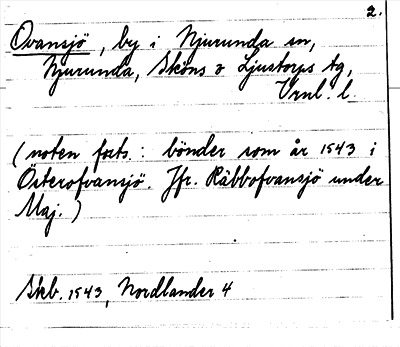 2.
Ovansjö, by i Njurunda sn,
Njurunda, Sköns o Ljustorps tg,
Vrnl. l.
(noten forts.: bönder som år 1543 i
Österofvansjö. Jfr. Räbbofvansjö under
Maj.)
Skb. 1543, Nordlander 4